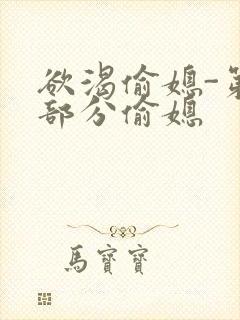 欲渴偷媳-第
部分偷媳
馬寶寶